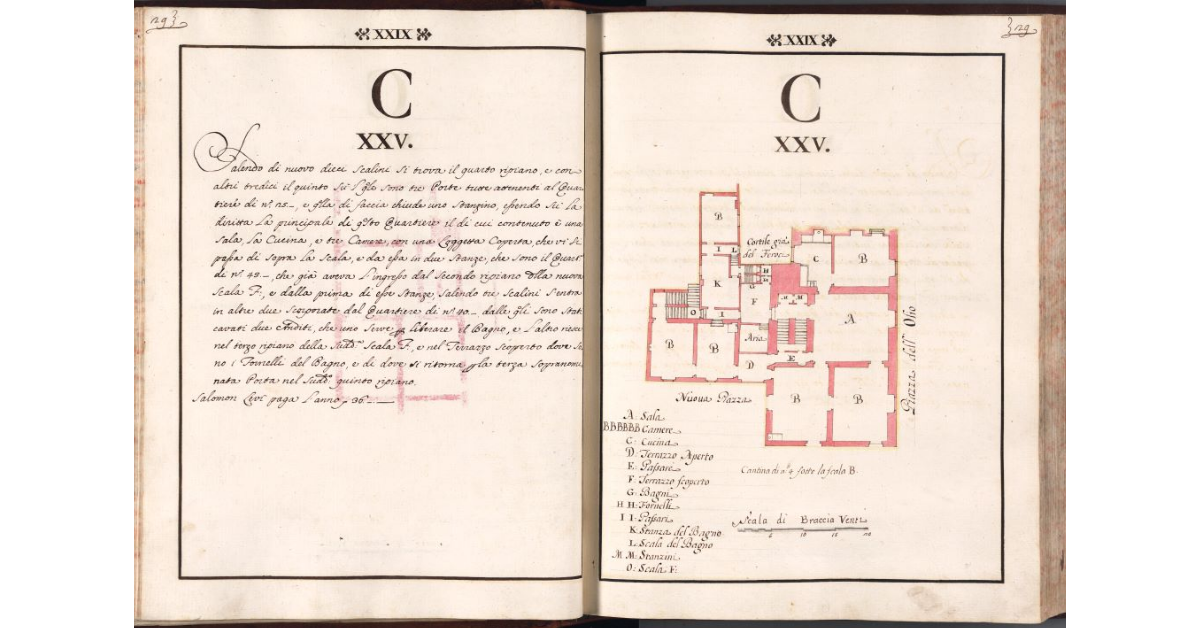 293
XXIX
C
XXV.
Salendo di nuovo dieci Scalini si trova il quarto ripiano, e con
altri tredici il quinto Su q.le sono tre Porte tutte attenenti al Quar
tiere di n.o 25_, e q.lla di faccia chiude uno Stanzino, essendo Su la
diritta La principale di q.sto Quartiere il di cui contenuto è una
Sala, la Cucina, e tre Camere, con una Loggetta Coperta, che vi si
passa di Sopra la Scala, e da essa in due Stanze, che sono il Quart
di n.o 48_, che già aveva l'ingresso dal Secondo ripiano della nuova
Scala F., e dalla prima di esse Stanze, Salendo tre Scalini S'entra
in altre due Scorporate dal Quartiere di n.o 40_ dalle q.li sono Stat
cavati due Anditi, che uno Serve p liberare il Bagno, e l'altro riesce
nel terzo ripiano della Sud.a Scala F., e nel Terrazzo Scoperto dove So
no i Fornelli del Bagno, e di dove si ritorna p la terza Sopranomi
nata Porta nel Sud.o quinto ripiano.
Salomon Levi paga l'anno p 36_
329
XXIX
C
XXV.
B
Cortile già
del Feroci
I L
C
B
K
H
H
G
F
M M
I
A
O
I
B
B
Aria
E
D
Piazza dell' Olio
Nuova Piazza
B
B
A Sala
BBBBBB Camere
C: Cucina
D: Terrazzo Aperto
E. Passare
F. Terrazzo scoperto
G: Bagni
H H: Fornelli
I I: Passari
K: Stanza del Bagno
L: Scala del Bagno
M M: Stanzini
O: Scala F.
Cantina di n.o 4 sotto la scala B.
Scala di Braccia Venti